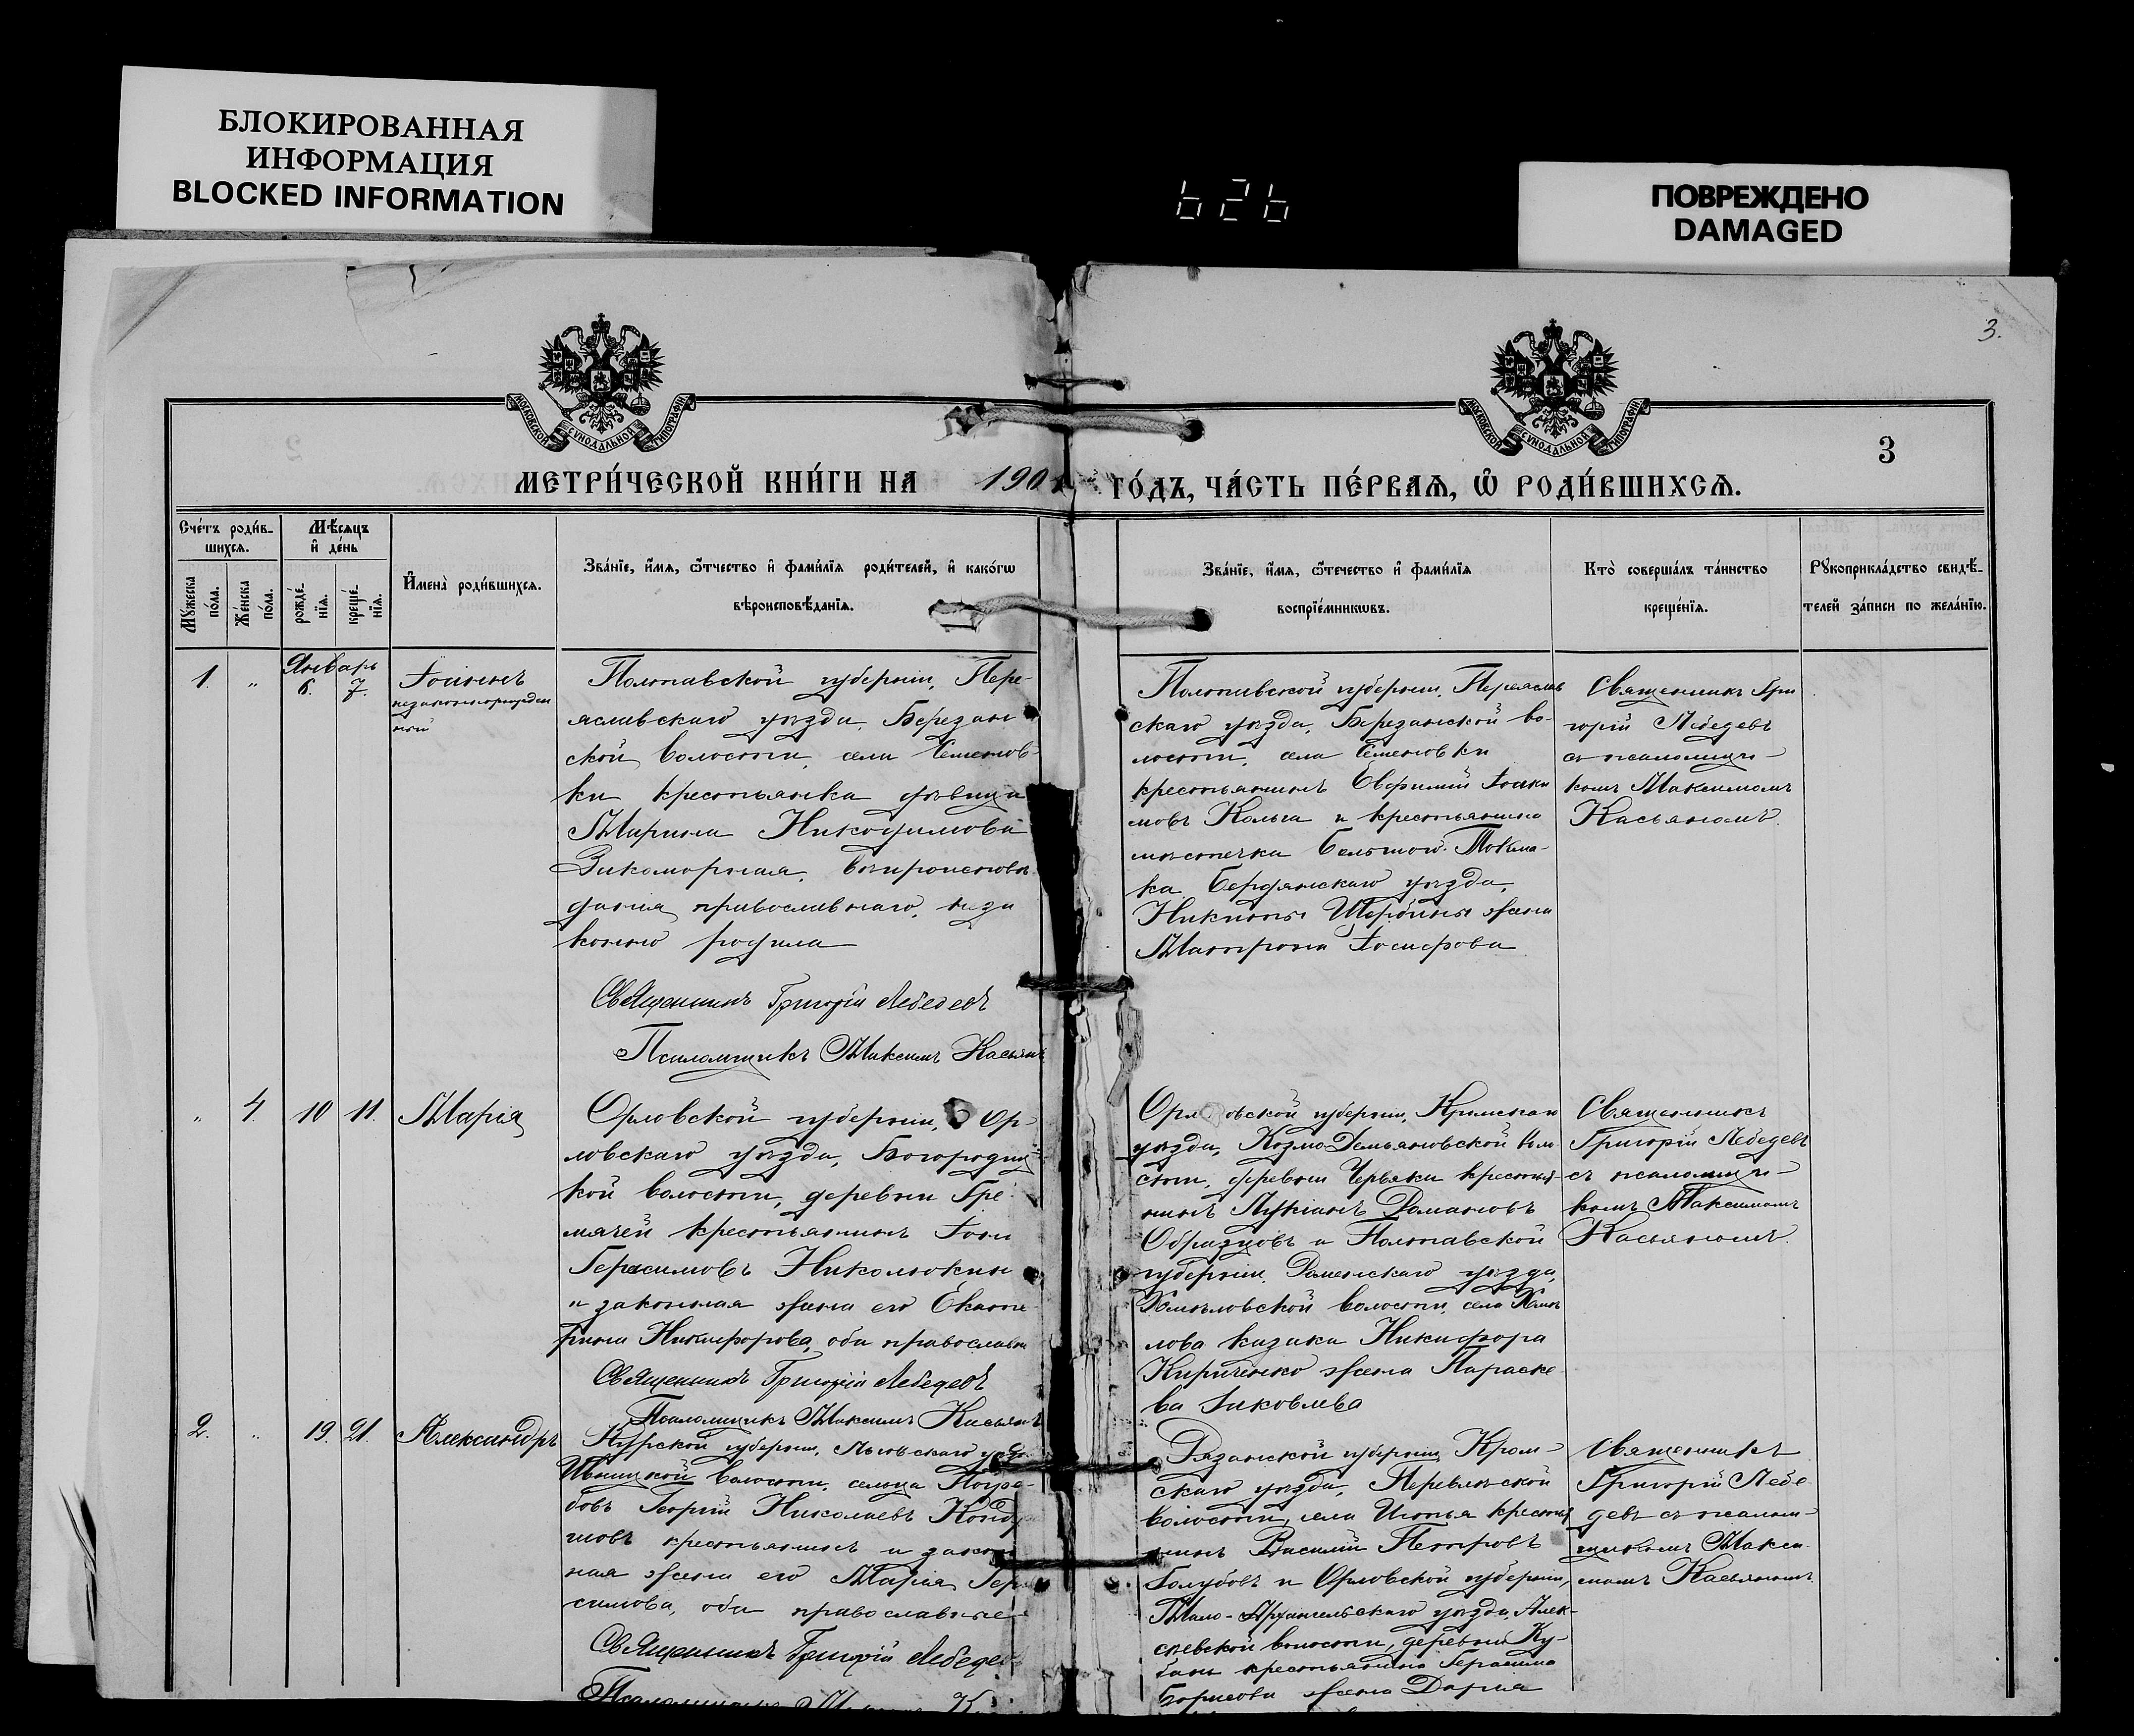 БЛОКИРОВАННАЯ
ИНФОРМАЦИЯ
BLOCKED INFORMATION
ПОВРЕЖДЕНО
DAMAGED
3.
МОСКОВСКОЙ СУНОДАЛЬНОЙ ТИПОГРАФІИ
МОСКОВСКОЙ СУНОДАЛЬНОЙ ТИПОГРАФІИ
3
МЕТРИ́ЧЕСКОЙ КНИ́ГИ НА 1901 ГО́ДЪ, ЧА́СТЬ ПЕ́РВАѦ, Ѽ РОДИ́ВШИХСѦ.
Сче́тъ роди́в-
шихсѧ.
Мꙋжеска по́ла.
Же́нска по́ла.
Мѣ́сяцъ
и҆ де́нь
рожде́-
нїѧ.
креще́-
нїѧ.
И҆мена̀ роди́вшихсѧ.
Зва́нїе, и҆́мѧ, ѻ҆́тчество и҆ фами́лїѧ роди́телей, и҆ како́гѡ
вѣроисповѣ́данїѧ.
Зва́нїе, и҆́мѧ, ѻ҆́течество и҆ фами́лїѧ
воспрїе́мникѡвъ.
Кто̀ соверша́лъ та́инство
креще́нїѧ.
Рꙋкоприкла́дство свидѣ́-
телей за́писи по жела́нїю.
1. " Январь 6. 7.
Іоаннъ
незаконнорожден
ный
Полтавской губерніи, Пере-
яславскаго уѣзда, Березан
ской волости, села Семенов-
ки крестьянка дѣвица
Марина Никодимова
вѣроисповѣ-
данія православнаго, неза
конно родила
Священникъ Григорій Лебедевъ
Псаломщикъ Максимъ Касьянъ
Полтавской губерніи, Переяслав
скаго уѣзда, Березанской во-
лости, села Семеновки
крестьянинъ Евфимій Іоаки
мовъ Кольга и крестьянина
мѣстечка Большого Токма-
ка Бердянскаго уѣзда,
Никиты Щербины жена
Матрона Іосифова
Священникъ Гри
горій Лебедевъ
съ псаломщи-
комъ Максимомъ
Касьяномъ.
" 4. 10 11. Марія
Орловской губерніи, Ор-
ловскаго уѣзда, Богородиц
кой волости, деревни Гре-
мячей крестьянинъ
Герасимовъ Николюкин
и законная жена его Екате-
рина Никифорова, оба православн
Священникъ Григорій Лебедевъ
Псаломщикъ Максимъ Касьянъ
Орловской губерніи,
уѣзда, Козмо-Демьяновской воло
сти, деревни Червяки крестья-
нинъ Лукіанъ Романовъ
Образцовъ и Полтавской
губерніи, Роменскаго уѣзда,
Хмѣловской волости, села Хмѣ
лова казака Никифора
Кириченко жена Параске
ва Іаковлева
Священникъ
Григорій Лебедевъ
съ псаломщи-
комъ Максимомъ
Касьяномъ.
2. " 19. 21. Александръ
Курской губерніи, Льговскаго уѣзда
Ивницкой волости, сельца
Георгій Николаевъ
крестьянинъ и закон
ная жена его Марія Гера
симова, оба православные
Священникъ Григорій Лебедев
Рязанской губерніи,
скаго уѣзда,
волости, села крестья
нинъ Василій Петровъ
Голубовъ и Орловской губерніи,
Мало-Архангельскаго уѣзда, Алек-
сѣевской волости, деревни Ку-
бани крестьянина Герасима
Борисова жена Дарія
Священникъ
Григорій Лебе-
девъ съ псалом-
щикомъ Макси-
момъ Касьяномъ.